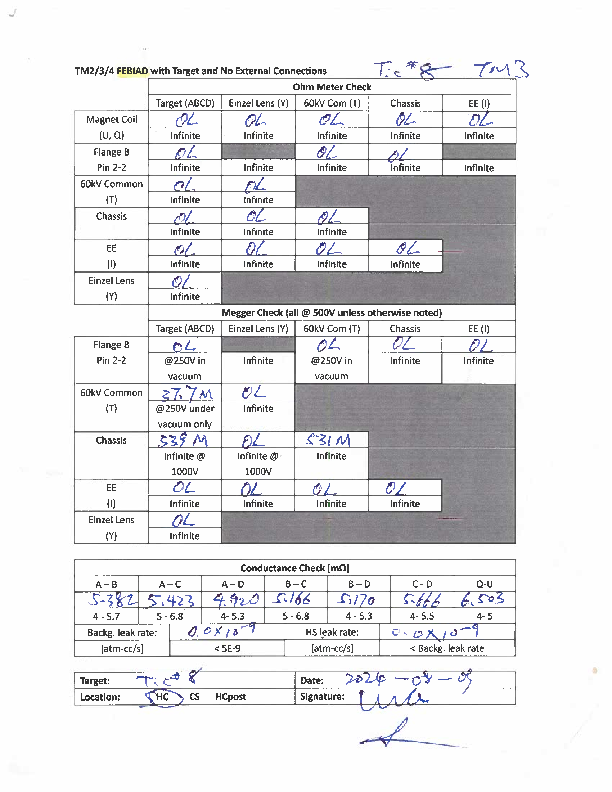 TM2/3/4 FEBIAD with Target and No External Connections Tic#8 TM3
Ohm Meter Check
Target (ABCD) Einzel Lens (Y) 60kV Com (T) Chassis EE (I)
Magnet Coil OL OL OL OL OL
(U, Q) Infinite Infinite Infinite Infinite Infinite
Flange 8 OL OL OL
Pin 2-2 Infinite Infinite Infinite Infinite Infinite
60kV Common OL OL
(T) Infinite Infinite
Chassis OL OL OL
Infinite Infinite Infinite
EE OL OL OL OL
(I) Infinite Infinite Infinite Infinite
Einzel Lens OL
(Y) Infinite
Megger Check (all @ 500V unless otherwise noted)
Target (ABCD) Einzel Lens (Y) 60kV Com (T) Chassis EE (I)
Flange 8 OL OL OL OL
Pin 2-2 @250V in Infinite @250V in Infinite Infinite
vacuum vacuum
60kV Common 37.7M OL
(T) @250V under Infinite
vacuum only
Chassis 539 M OL 531 M
Infinite @ Infinite @ Infinite
1000V 1000V
EE OL OL OL OL
(I) Infinite Infinite Infinite Infinite
Einzel Lens OL
(Y) Infinite
Conductance Check [mΩ]
A – B A – C A – D B – C B – D C - D Q-U
5.382 5.423 4.920 5.166 5.170 5.666 6.503
4 - 5.7 5 - 6.8 4 - 5.3 5 - 6.8 4 - 5.3 4 - 5.5 4- 5
Backg. leak rate: 0.0x10-9 HS leak rate: 0.0x10-9
[atm-cc/s] < 5E-9 [atm-cc/s] < Backg. leak rate
Target: Tic#8 Date: 2024-08-
Location: HC CS HCpost Signature: